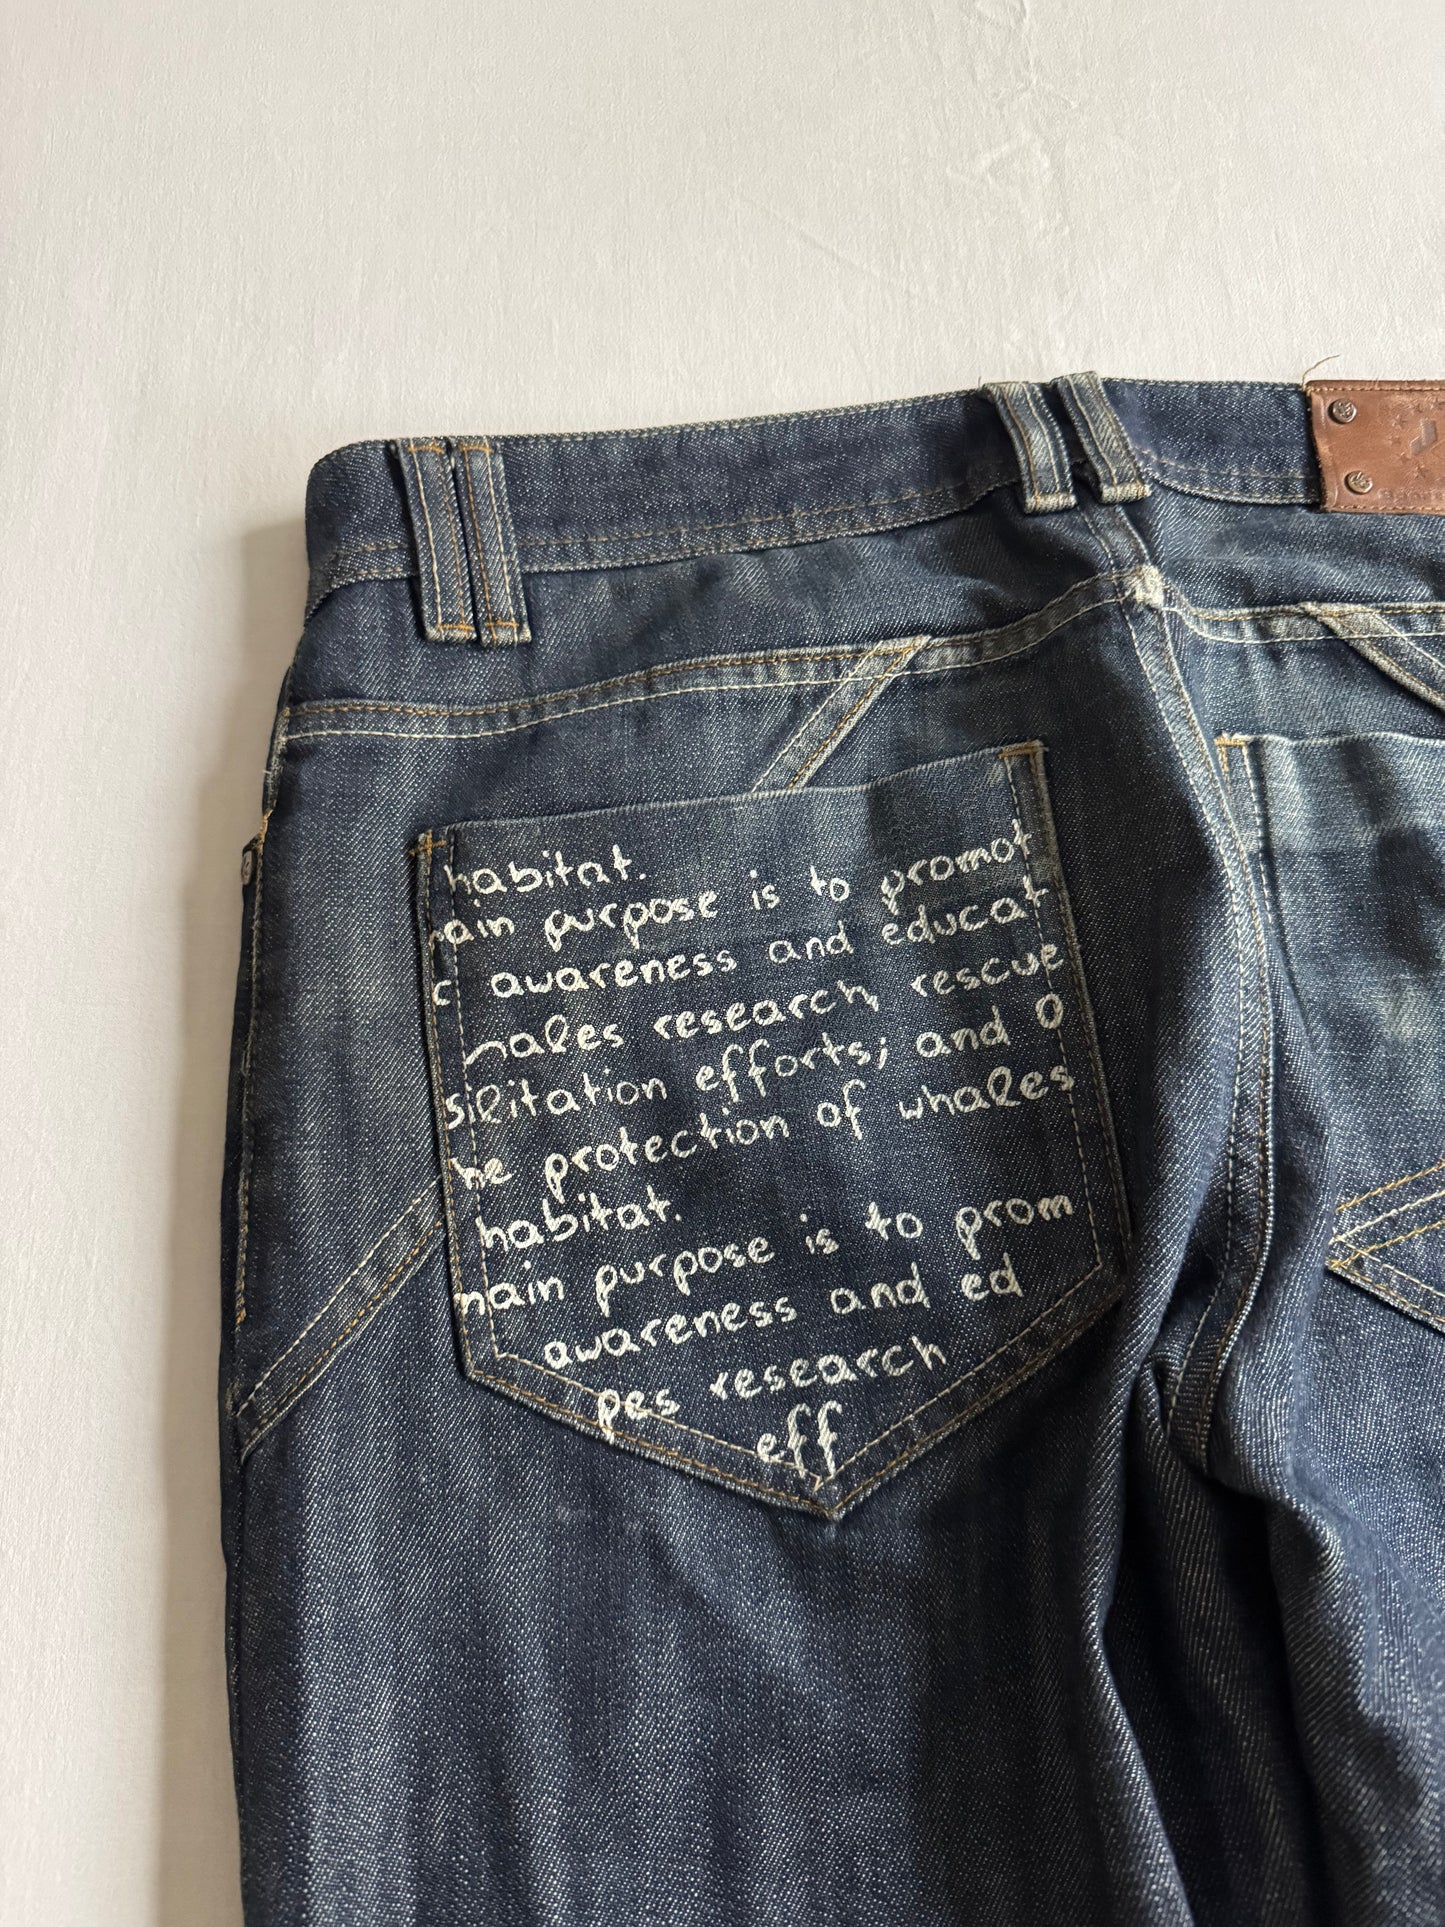 habitat.
ain purpose is to promot
r awareness and educat
hales research, rescue
silitation efforts; and O
he protection of whales
habitat.
main purpose is to prom
awareness and ed
pes research
eff